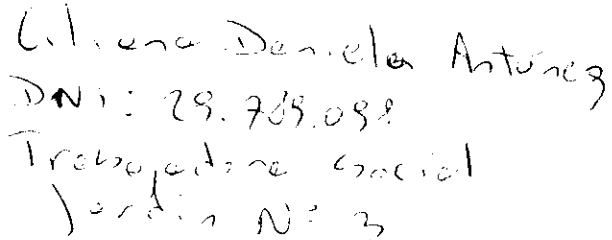 Liliana Daniela Antúnez
DNI: 29.769.098
Trabajadora Social
Jardín N° 3